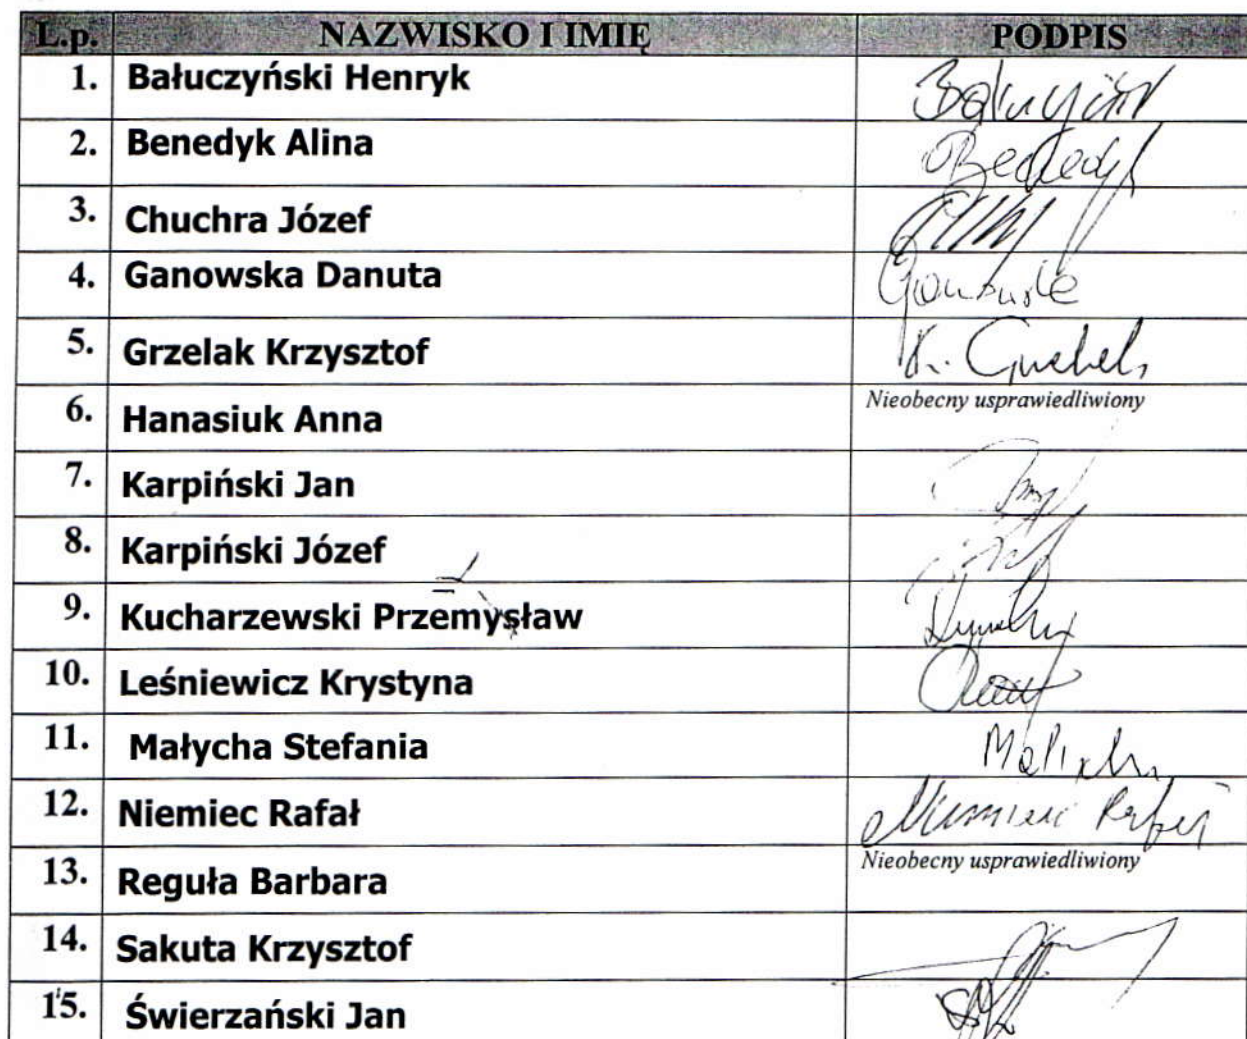 L.p. NAZWISKO I IMIĘ PODPIS
1. Bałuczyński Henryk
2. Benedyk Alina Benedyk
3. Chuchra Józef
4. Ganowska Danuta
5. Grzelak Krzysztof K.
6. Hanasiuk Anna Nieobecny usprawiedliwiony
7. Karpiński Jan
8. Karpiński Józef
9. Kucharzewski Przemysław
10. Leśniewicz Krystyna
11. Małycha Stefania
12. Niemiec Rafał Niemiec Rafał
13. Reguła Barbara Nieobecny usprawiedliwiony
14. Sakuta Krzysztof
15. Świerzański Jan